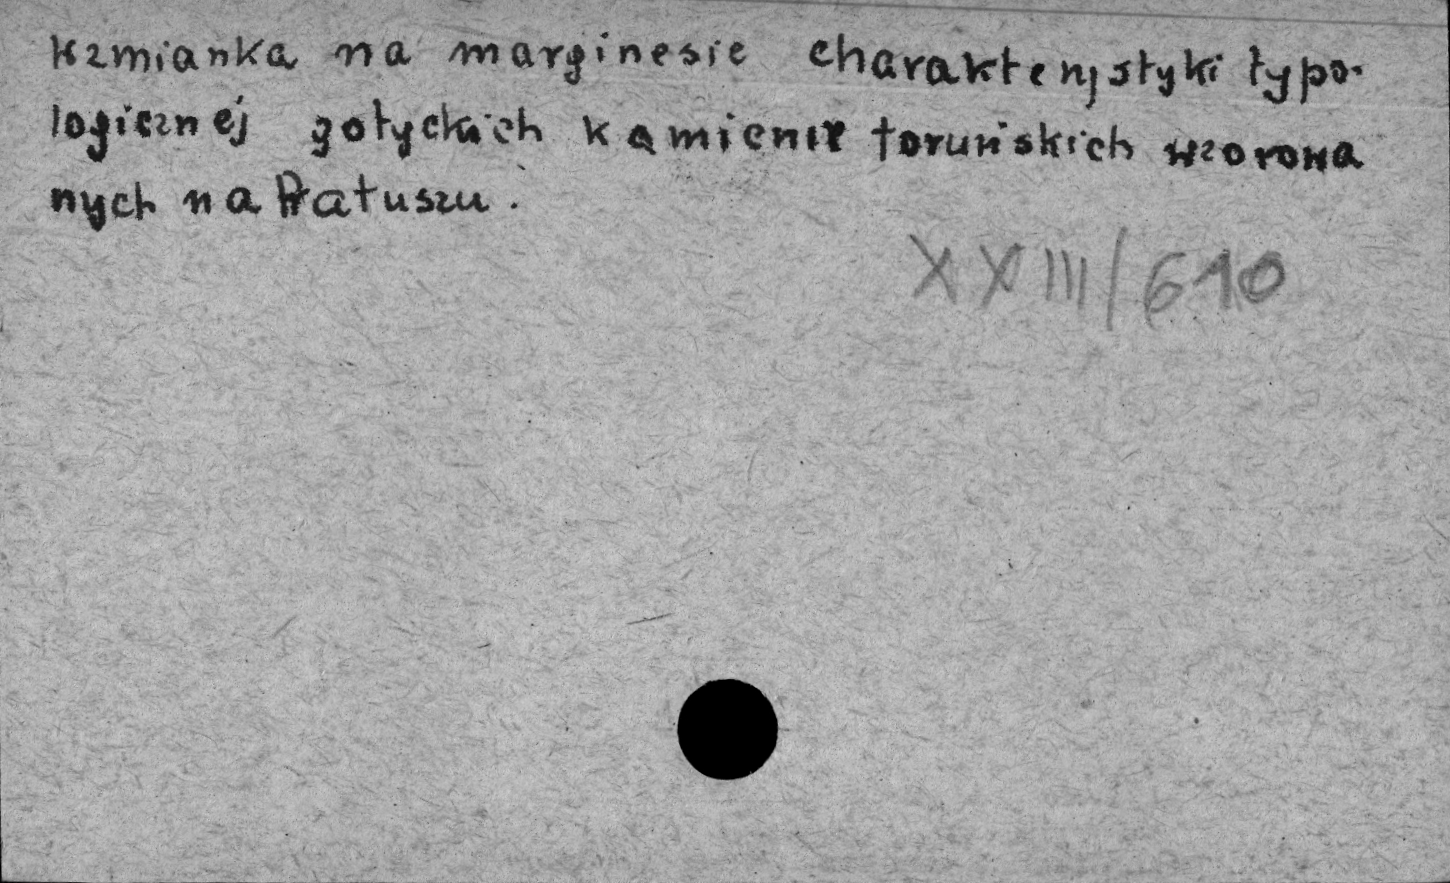 Wzmianka na marginesie charakterystyki typo-
logicznej gotyckich kamienic toruńskich wzorowa
nych na Ratuszu.
XXIII/610